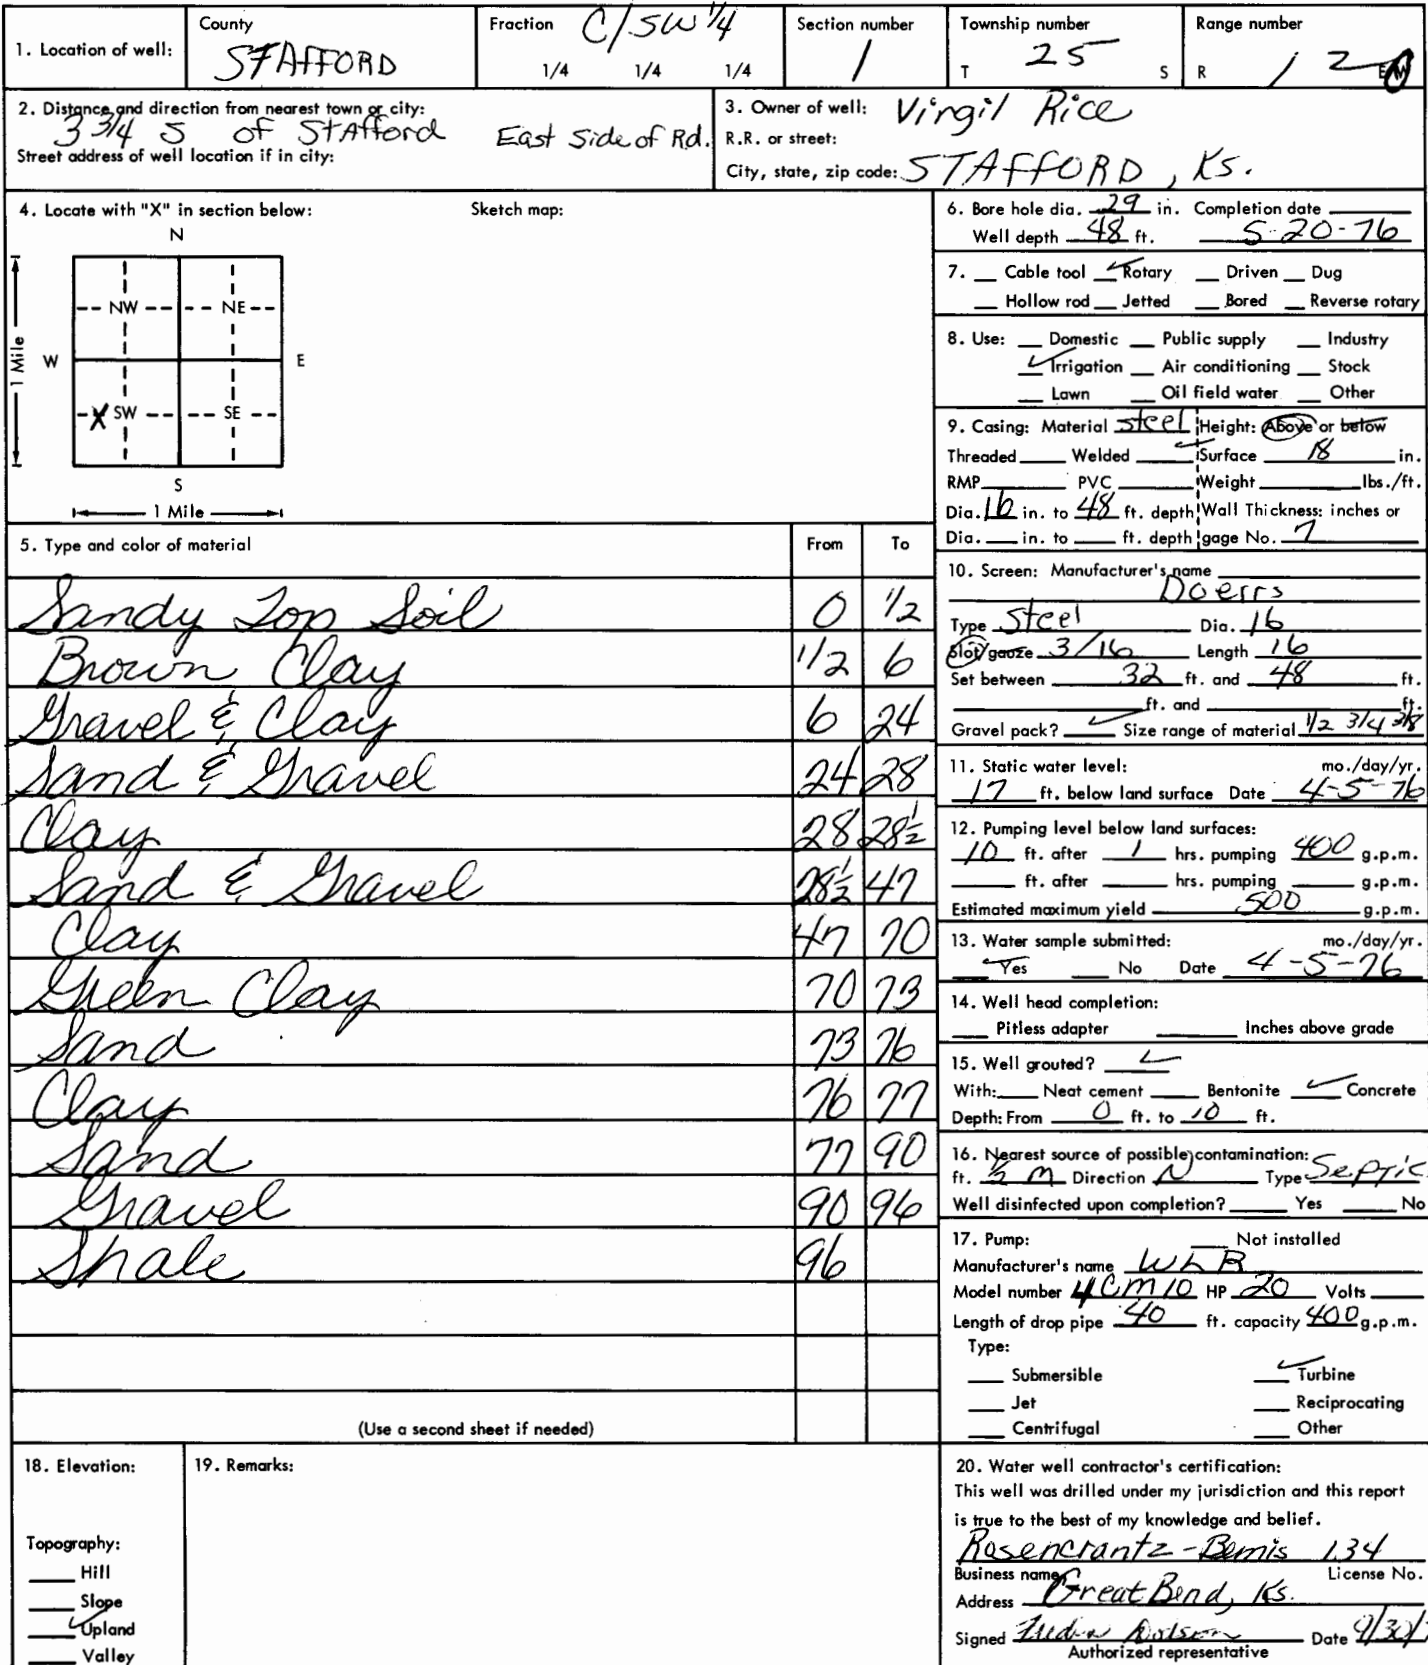 1. Location of well: County STAFFORD Fraction C/SW 1/4 1/4 1/4 1/4 Section number 1 Township number T 25 S Range number R 12 E W
2. Distance and direction from nearest town or city: 3 3/4 S of Stafford East Side of Rd.
Street address of well location if in city:
3. Owner of well: Virgil Rice
R.R. or street:
City, state, zip code: STAFFORD, Ks.
4. Locate with "X" in section below: Sketch map:
N
NW NE
W E
1 Mile
X SW SE
S
1 Mile
5. Type and color of material From To
Sandy Top Soil 0 1/2
Brown Clay 1/2 6
Gravel & Clay 6 24
Sand & Gravel 24 28
Clay 28 28½
Sand & Gravel 28½ 47
Clay 47 70
Green Clay 70 73
Sand 73 76
Clay 76 77
Sand 77 90
Gravel 90 96
Shale 96
(Use a second sheet if needed)
6. Bore hole dia. 29 in. Completion date
Well depth 48 ft. 5-20-76
7. Cable tool ✓ Rotary Driven Dug
Hollow rod Jetted Bored Reverse rotary
8. Use: Domestic Public supply Industry
✓ Irrigation Air conditioning Stock
Lawn Oil field water Other
9. Casing: Material steel Height: Above or below
Threaded Welded ✓ Surface 18 in.
RMP PVC Weight lbs./ft.
Dia. 16 in. to 48 ft. depth Wall Thickness: inches or
Dia. in. to ft. depth gage No. 7
10. Screen: Manufacturer's name
Doerrs
Type steel Dia. 16
Slot/gauze 3/16 Length 16
Set between 32 ft. and 48 ft.
ft. and ft.
Gravel pack? ✓ Size range of material 1/2 3/4 3/8
11. Static water level: mo./day/yr.
17 ft. below land surface Date 4-5-76
12. Pumping level below land surfaces:
10 ft. after 1 hrs. pumping 400 g.p.m.
ft. after hrs. pumping g.p.m.
Estimated maximum yield 500 g.p.m.
13. Water sample submitted: mo./day/yr.
✓ Yes No Date 4-5-76
14. Well head completion:
Pitless adapter Inches above grade
15. Well grouted? ✓
With: Neat cement Bentonite ✓ Concrete
Depth: From 0 ft. to 10 ft.
16. Nearest source of possible contamination:
ft. ½ M Direction N Type Septic
Well disinfected upon completion? Yes No
17. Pump: Not installed
Manufacturer's name WLR
Model number 4CM10 HP 20 Volts
Length of drop pipe 40 ft. capacity 400 g.p.m.
Type:
Submersible ✓ Turbine
Jet Reciprocating
Centrifugal Other
18. Elevation:
Topography:
Hill
Slope
✓ Upland
Valley
19. Remarks:
20. Water well contractor's certification:
This well was drilled under my jurisdiction and this report
is true to the best of my knowledge and belief.
Rosencrantz-Bemis 134
Business name License No.
Address Great Bend, Ks.
Signed Date 9/30/
Authorized representative